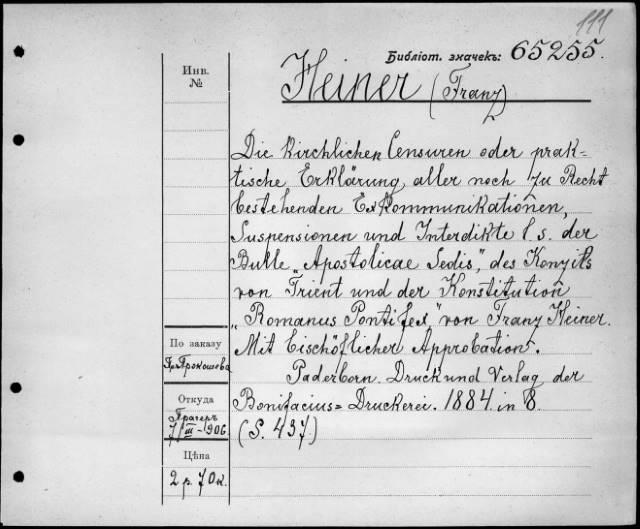 111
Библіот. значекъ: 65255.
Инв.
№
Heiner (Franz)
Die kirchlichen Censuren oder prak-
tische Erklärung aller noch zu Recht
bestehenden Exkommunikationen,
Suspensionen und Interdikte l. s. der
Bulle „Apostolicae Sedis", des Konzils
von Trient und der Konstitution
„Romanus Pontifex" von Franz Heiner.
Mit bischöflicher Approbation.
Paderborn. Druck und Verlag der
Bonifacius=Druckerei. 1884. in 8.
(S. 437.)
По заказу
Пр. Прокошева
Откуда
Прагеръ
7/III - 906.
Цѣна
2 р. 70 к.